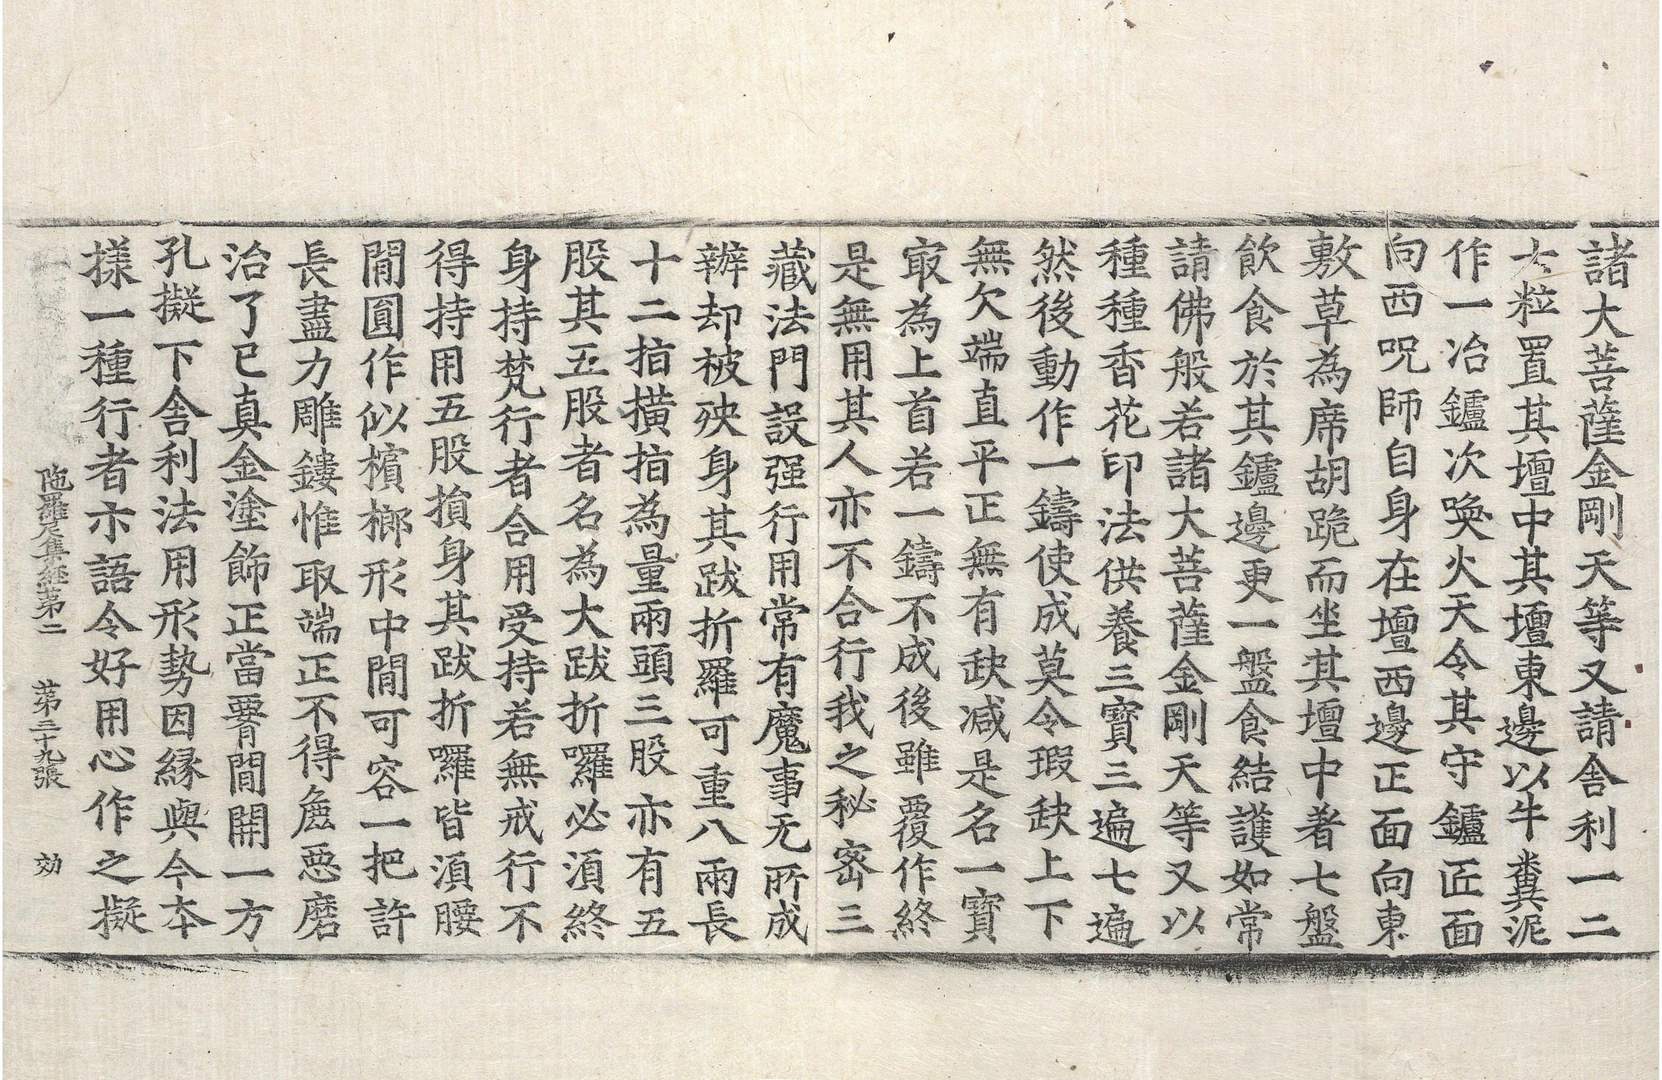 諸大菩薩金剛天等又請舍利一二
七粒置其壇中其壇東邊以牛糞泥
作一冶鑪次喚火天令其守鑪匠面
向西呪師自身在壇西邊正面向東
敷草為席胡跪而坐其壇中著七盤
飲食於其鑪邊更一盤食結護如常
請佛般若諸大菩薩金剛天等又以
種種香花印法供養三寶三遍七遍
然後動作一鑄使成莫令瑕缺上下
無欠端直平正無有缺減是名一寶
㝡為上首若一鑄不成後雖覆作終
是無用其人亦不合行我之秘密三
藏法門設强行用常有魔事无所成
辦却被殃身其跋折羅可重八兩長
十二指横指為量兩頭三股亦有五
股其五股者名為大跋折囉必須終
身持梵行者合用受持若無戒行不
得持用五股損身其跋折囉皆須腰
閒圓作似檳榔形中閒可容一把許
長盡力雕鏤惟取端正不得麁惡磨
治了已真金塗飾正當署閒開一方
孔擬下舍利法用形勢因緣與今本
樣一種行者亦語令好用心作之擬
陁羅尼集經第二 第三十九張 効